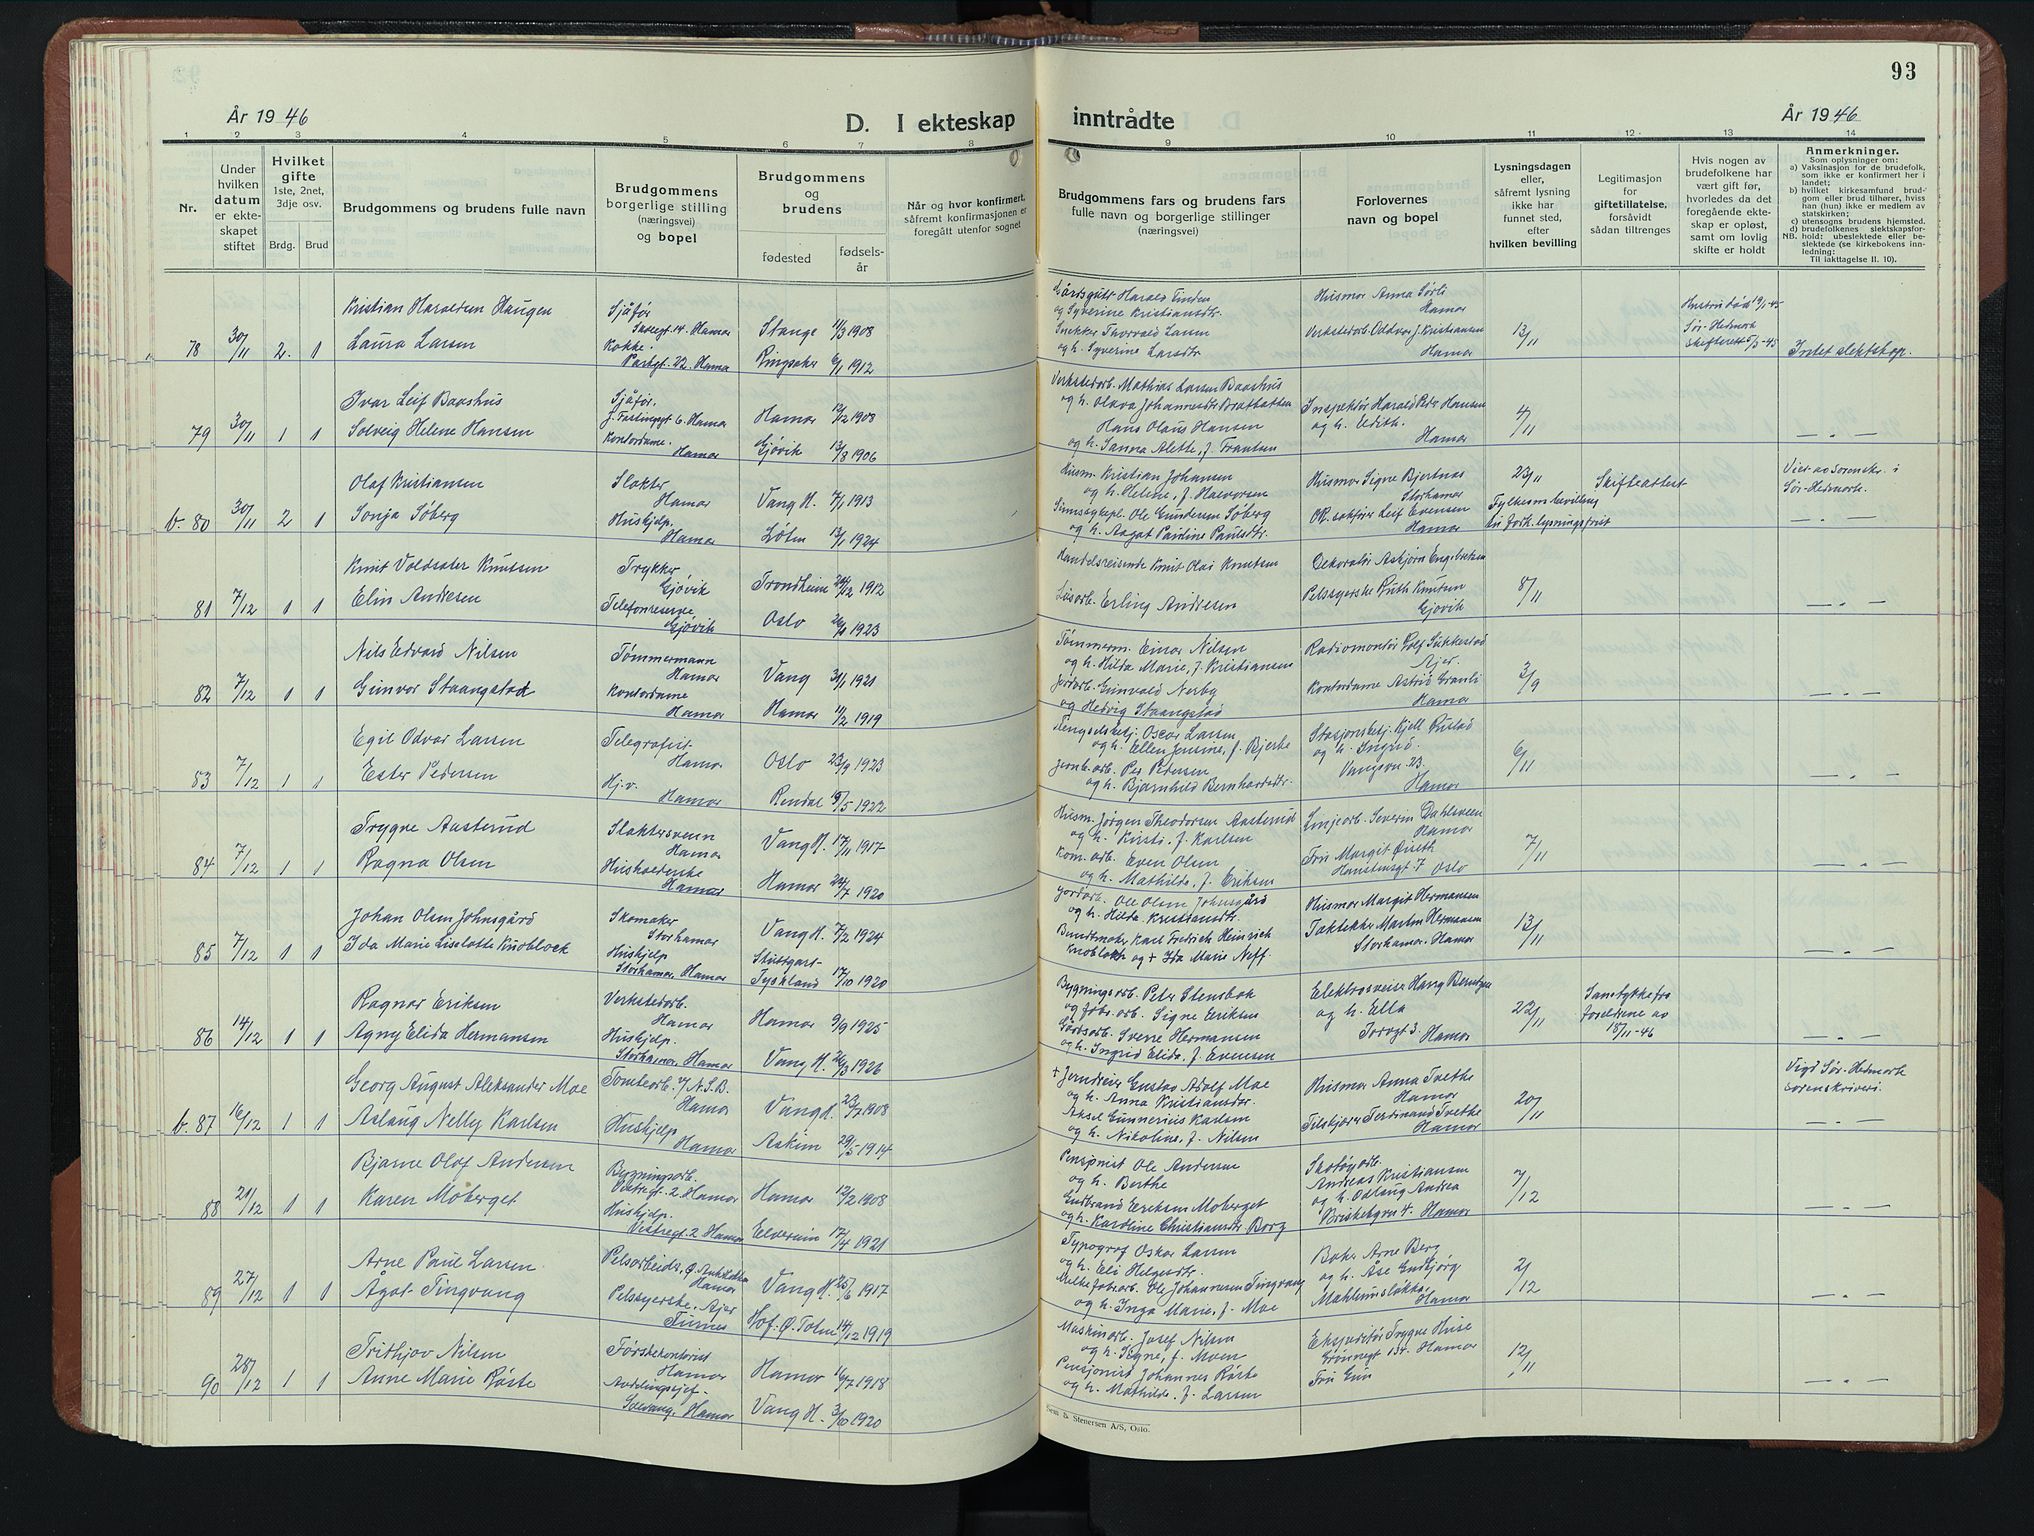 93
År 1946
D. I ekteskap inntrådte
År 1946
1 2 3 4 5 6 7 8 9 10 11 12 13 14
Nr.
Under hvilken datum er ekteskapet stiftet
Hvilket gifte
1ste, 2net, 3dje osv.
Brdg. Brud
Brudgommens og brudens fulle navn
Brudgommens borgerlige stilling (næringsvei) og bopel
Brudgommens og brudens
fødested
fødselsår
Når og hvor konfirmert, såfremt konfirmasjonen er foregått utenfor sognet
Brudgommens fars og brudens fars fulle navn og borgerlige stillinger (næringsvei)
Forlovernes navn og bopel
Lysningsdagen eller, såfremt lysning ikke har funnet sted, efter hvilken bevilling
Legitimasjon for giftetillatelse, forsåvidt sådan tiltrenges
Hvis nogen av brudefolkene har vært gift før, hvorledes da det foregående ekteskap er opløst, samt om lovlig skifte er holdt
Anmerkninger.
Som oplysninger om:
a) Vaksinasjon for de brudefolk, som ikke er konfirmert her i landet;
b) hvilket kirkesamfund brudgom eller brud tilhører, hviss han (hun) ikke er medlem av statskirken;
c) utensogns brudens hjemsted.
d) brudefolkenes slektskapsforhold: ubeslektede eller beslektede (se kirkebokens innledning:
NB.
Til iakttagelse II. 10).
78 30/11 2. 1
Kristian Haraldsen Haugen
Laura Larsen
Sjåfør
Hamar
Kokke.
Parkgt. 22. Hamar
Stange 11/3 1908
Ringsaker 6/1 1912
Gårdsgutt Harald Finden
og Syverine Kristiansdtr.
Snekker Thorvald Larsen
og h. Syverine Larsdtr.
Husmor Anna Sørli
Hamar
Verkstedarb. Oddvar J. Kristiansen
Hamar
13/11
Hustru død 19/1-45
Sør-Hedmark
skifterett 5/3-45
Intet slektskap.
79 30/11 1 1
Ivar Leif Baashus
Solveig Helene Hansen
Sjåfør.
J. Fastingsgt 6. Hamar
Kontordame.
Hamar
Hamar 12/12 1908
Gjøvik 13/8 1906
Verkstedarb. Mathias Larsen Baashus
og h. Olava Johannesdtr Bratbatten
Hans Olaus Hansen
og h. Sanna Alette, f. Frantsen
Inspektør Harald Peder Hansen
og h. Edith.
Hamar
4/11
— „ —
b. 80 30/11 2 1
Olaf Kristiansen
Sonja Søberg
Slakter
Hamar
Hushjelp.
Hamar
Vang H. 7/1 1913
Løten 13/1 1924
Husm. Kristian Johansen
og h. Helene, f. Halvorsen
Ole Gundersen Søberg
og h. Aagot Pauline Paulsdtr.
Husmor Signe Bjertnæs
Storhamar
Leif Evensen
Hamar
23/11
Fylkesm. bevilling
Skifteattest
Viet av sorenskr. i
Sør-Hedmark.
— „ —
81 7/12 1 1
Knut Voldsæter Knutsen
Elin Andresen
Trykker
Gjøvik
Telefonreserve
Gjøvik
Trondheim 24/12 1912
Oslo 1923
Handelsreisende Knut Olai Knutsen
Løsarb. Erling Andresen
Dekoratør Asbjørn Engebretsen
Pelssyerske Ruth Knutsen
Gjøvik
8/11
— „ —
82 7/12 1 1
Nils Edvard Nilsen
Gunvor Staangstad
Tømmermann
Hamar
Kontordame
Hamar
Vang 31/1 1921
Hamar 11/2 1919
Tømmerm. Einar Nilsen
og h. Hilda Marie, f. Kristiansen
Jordarb. Gunvald Nerby
og Hedvig Staangstad
Radiomontør Rolf Sukkestad
Ajer.
Kontordame Astrid Granli
Hamar
3/9
— „ —
83 7/12 1 1
Egil Odvar Larsen
Ester Pedersen
Telegrafist
Hamar
Hj.v.
Hamar
Oslo 23/9 1923
Rendal 9/5 1922
Fengselsbetj. Oscar Larsen
og h. Ellen Jensine, f. Bjerke
Jernb. arb. Per Pedersen
og h. Bjarnhild Bernhardsdtr.
Stasjonsbetj. Kjell Rustad
og h. Ingrid.
Vangsvn. 23.
Hamar
6/11
— „ —
84 7/12 1 1
Trygve Aasterud
Ragna Olsen
Slaktersvenn
Hamar
Husholderske
Hamar
Vang H. 17/11 1917
Hamar 24/7 1920
Husm. Jørgen Theodorsen Aasterud
og h. Kristi, f. Karlsen
Kom. arb. Even Olsen
og h. Mathilde, f. Eriksen
Linjearb. Severin Dahlsveen
Hamar
Fru Margit Øiseth
7 Oslo
7/11
— „ —
85 7/12 1 1
Johan Olsen Johnsgård
Ida Marie Liselotte Knoblock
Skomaker
Storhamar
Hushjelp
Storhamar, Hamar
Vang H. 7/2 1924
Stuttgart
Tyskland 17/10 1920
Jordarb. Ole Olsen Johnsgård
og h. Hilda Kristiansdtr.
Buntmaker Karl Fredrich Heinrich
Knoblock og + Ida Marie Neff.
Husmor Margit Hermansen
Taktekker Martin Hermansen
Storhamar. Hamar
13/11
— „ —
86 14/12 1 1
Ragnar Eriksen
Agny Elida Hermansen
Verkstedarb.
Hamar
Hushjelp.
Storhamar, Hamar
Hamar 9/9 1925
Vang H. 26/3 1926
Bygningsarb. Peter Stensbak
og fabr. arb. Signe Eriksen
Gårdsarb. Sverre Hermansen
og h. Ingrid Elida, f. Evensen
Elektrosveiser Hans Berntsen
og h. Ella
Torvgt 3. Hamar
22/11
Samtykke fra
foreldrene av
18/11-46
b. 87 16/12 1 1
Georg August Aleksander Moe
Aslaug Nelly Karlsen
Tomtearb. v/ N.S.B.
Hamar
Hushjelp
Hamar
Vang H. 23/7 1908
Askim 29/5 1914
+ Jerndreier Gustav Adolf Moe
og h. Anna Kristiansdtr.
Aksel Gunnerius Karlsen
og h. Nikoline, f. Nilsen
Husmor Anna Tvethe
Hamar
Ferdinand Tvethe
Hamar
20/11
Vigd Sør-Hedmark
sorenskriveri.
— „ —
88 21/12 1 1
Bjarne Olaf Andersen
Karen Moberget
Bygningsarb.
Vestregt. 2 Hamar
Hushjelp.
Vestregt. 2 Hamar
Hamar 12/2 1908
Elverum 17/4 1921
Pensjonist Ole Andersen
og h. Berthe
Gudbrand Eriksen Moberget
og h. Karoline Christiansdtr. Borg
Skotøyarb.
Andreas Kristiansen
og h. Oslaug Andrea
Briskebyvn 4. Hamar
7/12
— „ —
89 27/12 1 1
Arne Paul Larsen
Ågot Tingvang
Pelsarbeider,
Hamar
Pelssyerske, Ajer
Furnes
Vang H. 25/6 1917
Hof. Ø. Toten 14/12 1919
Typograf Oskar Larsen
og h. Eli Helgesdtr.
Melkefabr.arb. Ole Johannesen Tingvang
og h. Inga Marie, f. Moe
Baker Arne Berg
og h. Åse Gudbjørg
Mathiusløkka
Hamar
2/12
— „ —
90 28/12 1 1
Frithjov Nilsen
Anne Marie Røste
Førstekontorist
Hamar
Avdelingssjef.
Solvang, Hamar
Hamar 16/7 1918
Vang H. 3/10 1920
Maskinarb. Josef Nilsen
og h. Signe, f. Moen
Pensjonist Johannes Røste
og h. Mathilde, f. Larsen
Ekspeditør Trygve Huse
Grønnegt 134. Hamar
Fru Gun
12/11
— „ —
Sem & Stenersen A/S, Oslo.